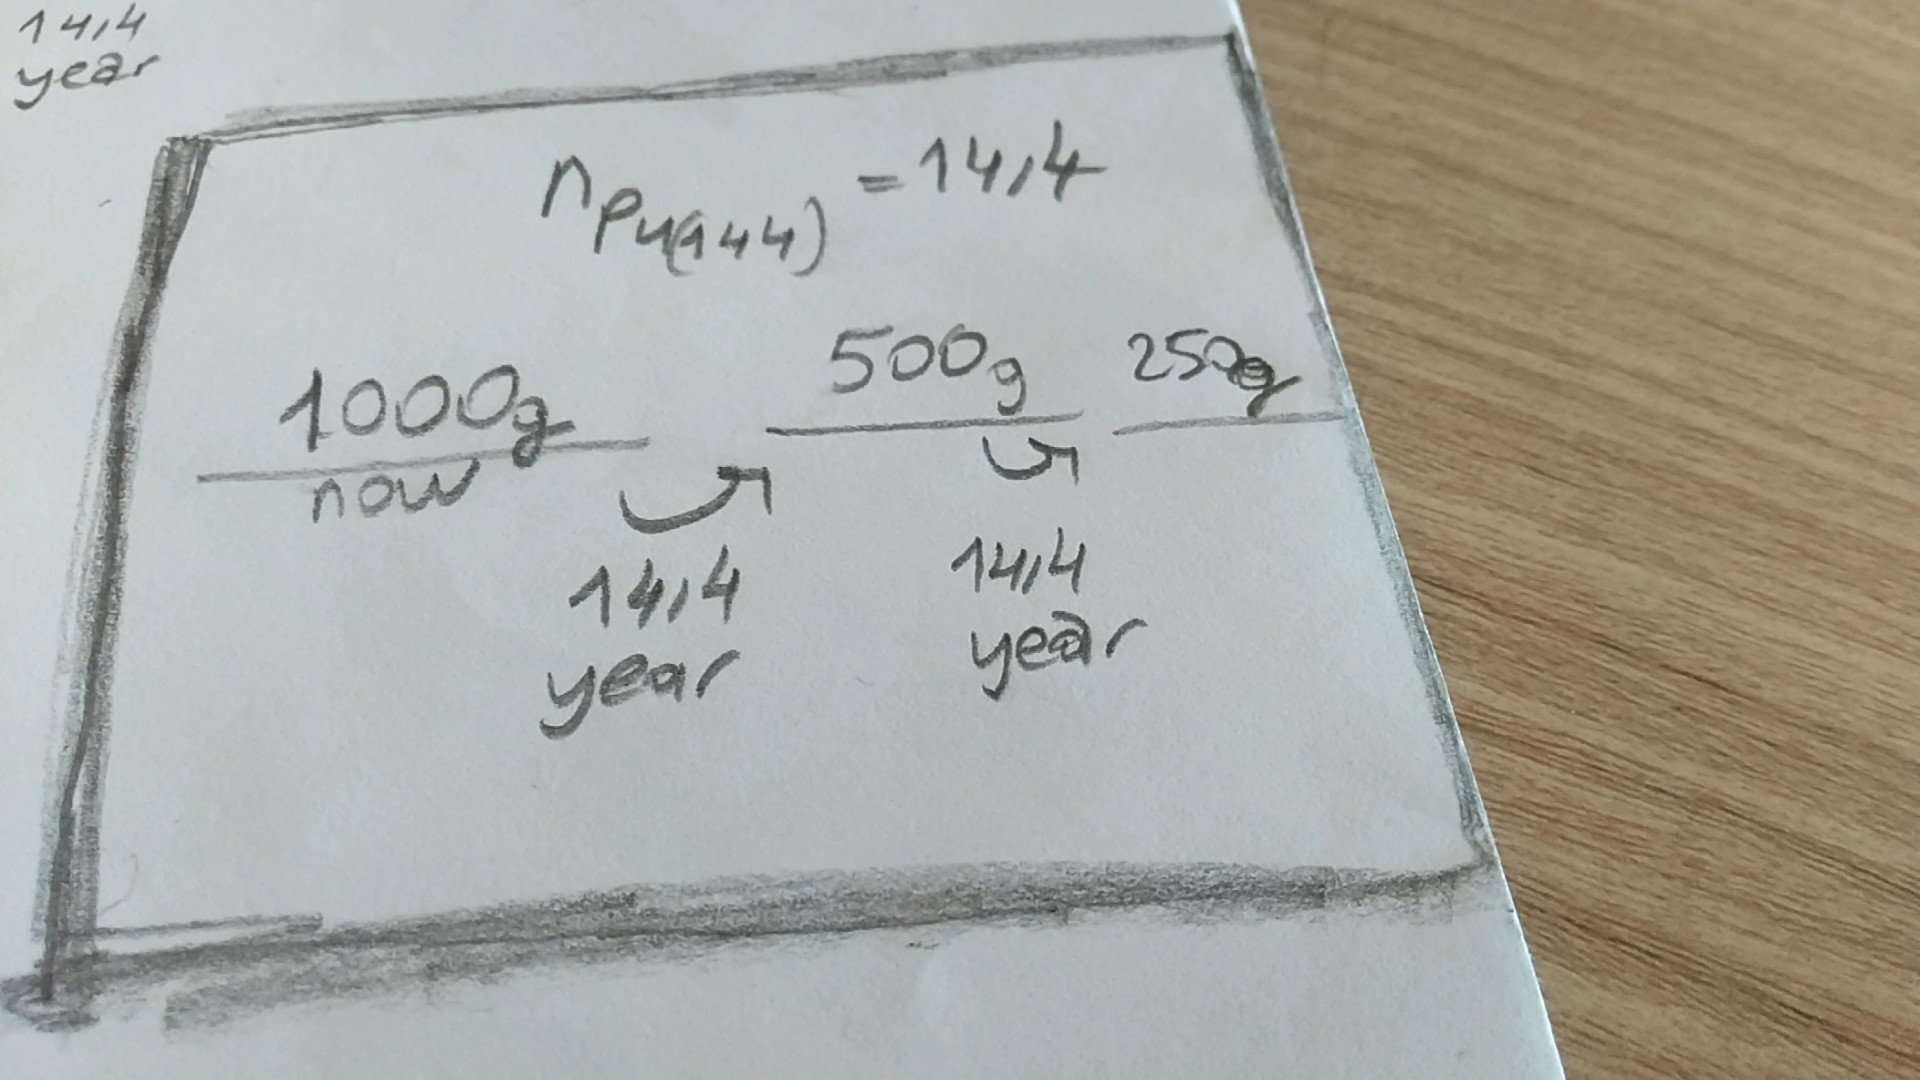 14,4
year
nPu(144) = 14,4
1000g 500g 250g
now
14,4 14,4
year year